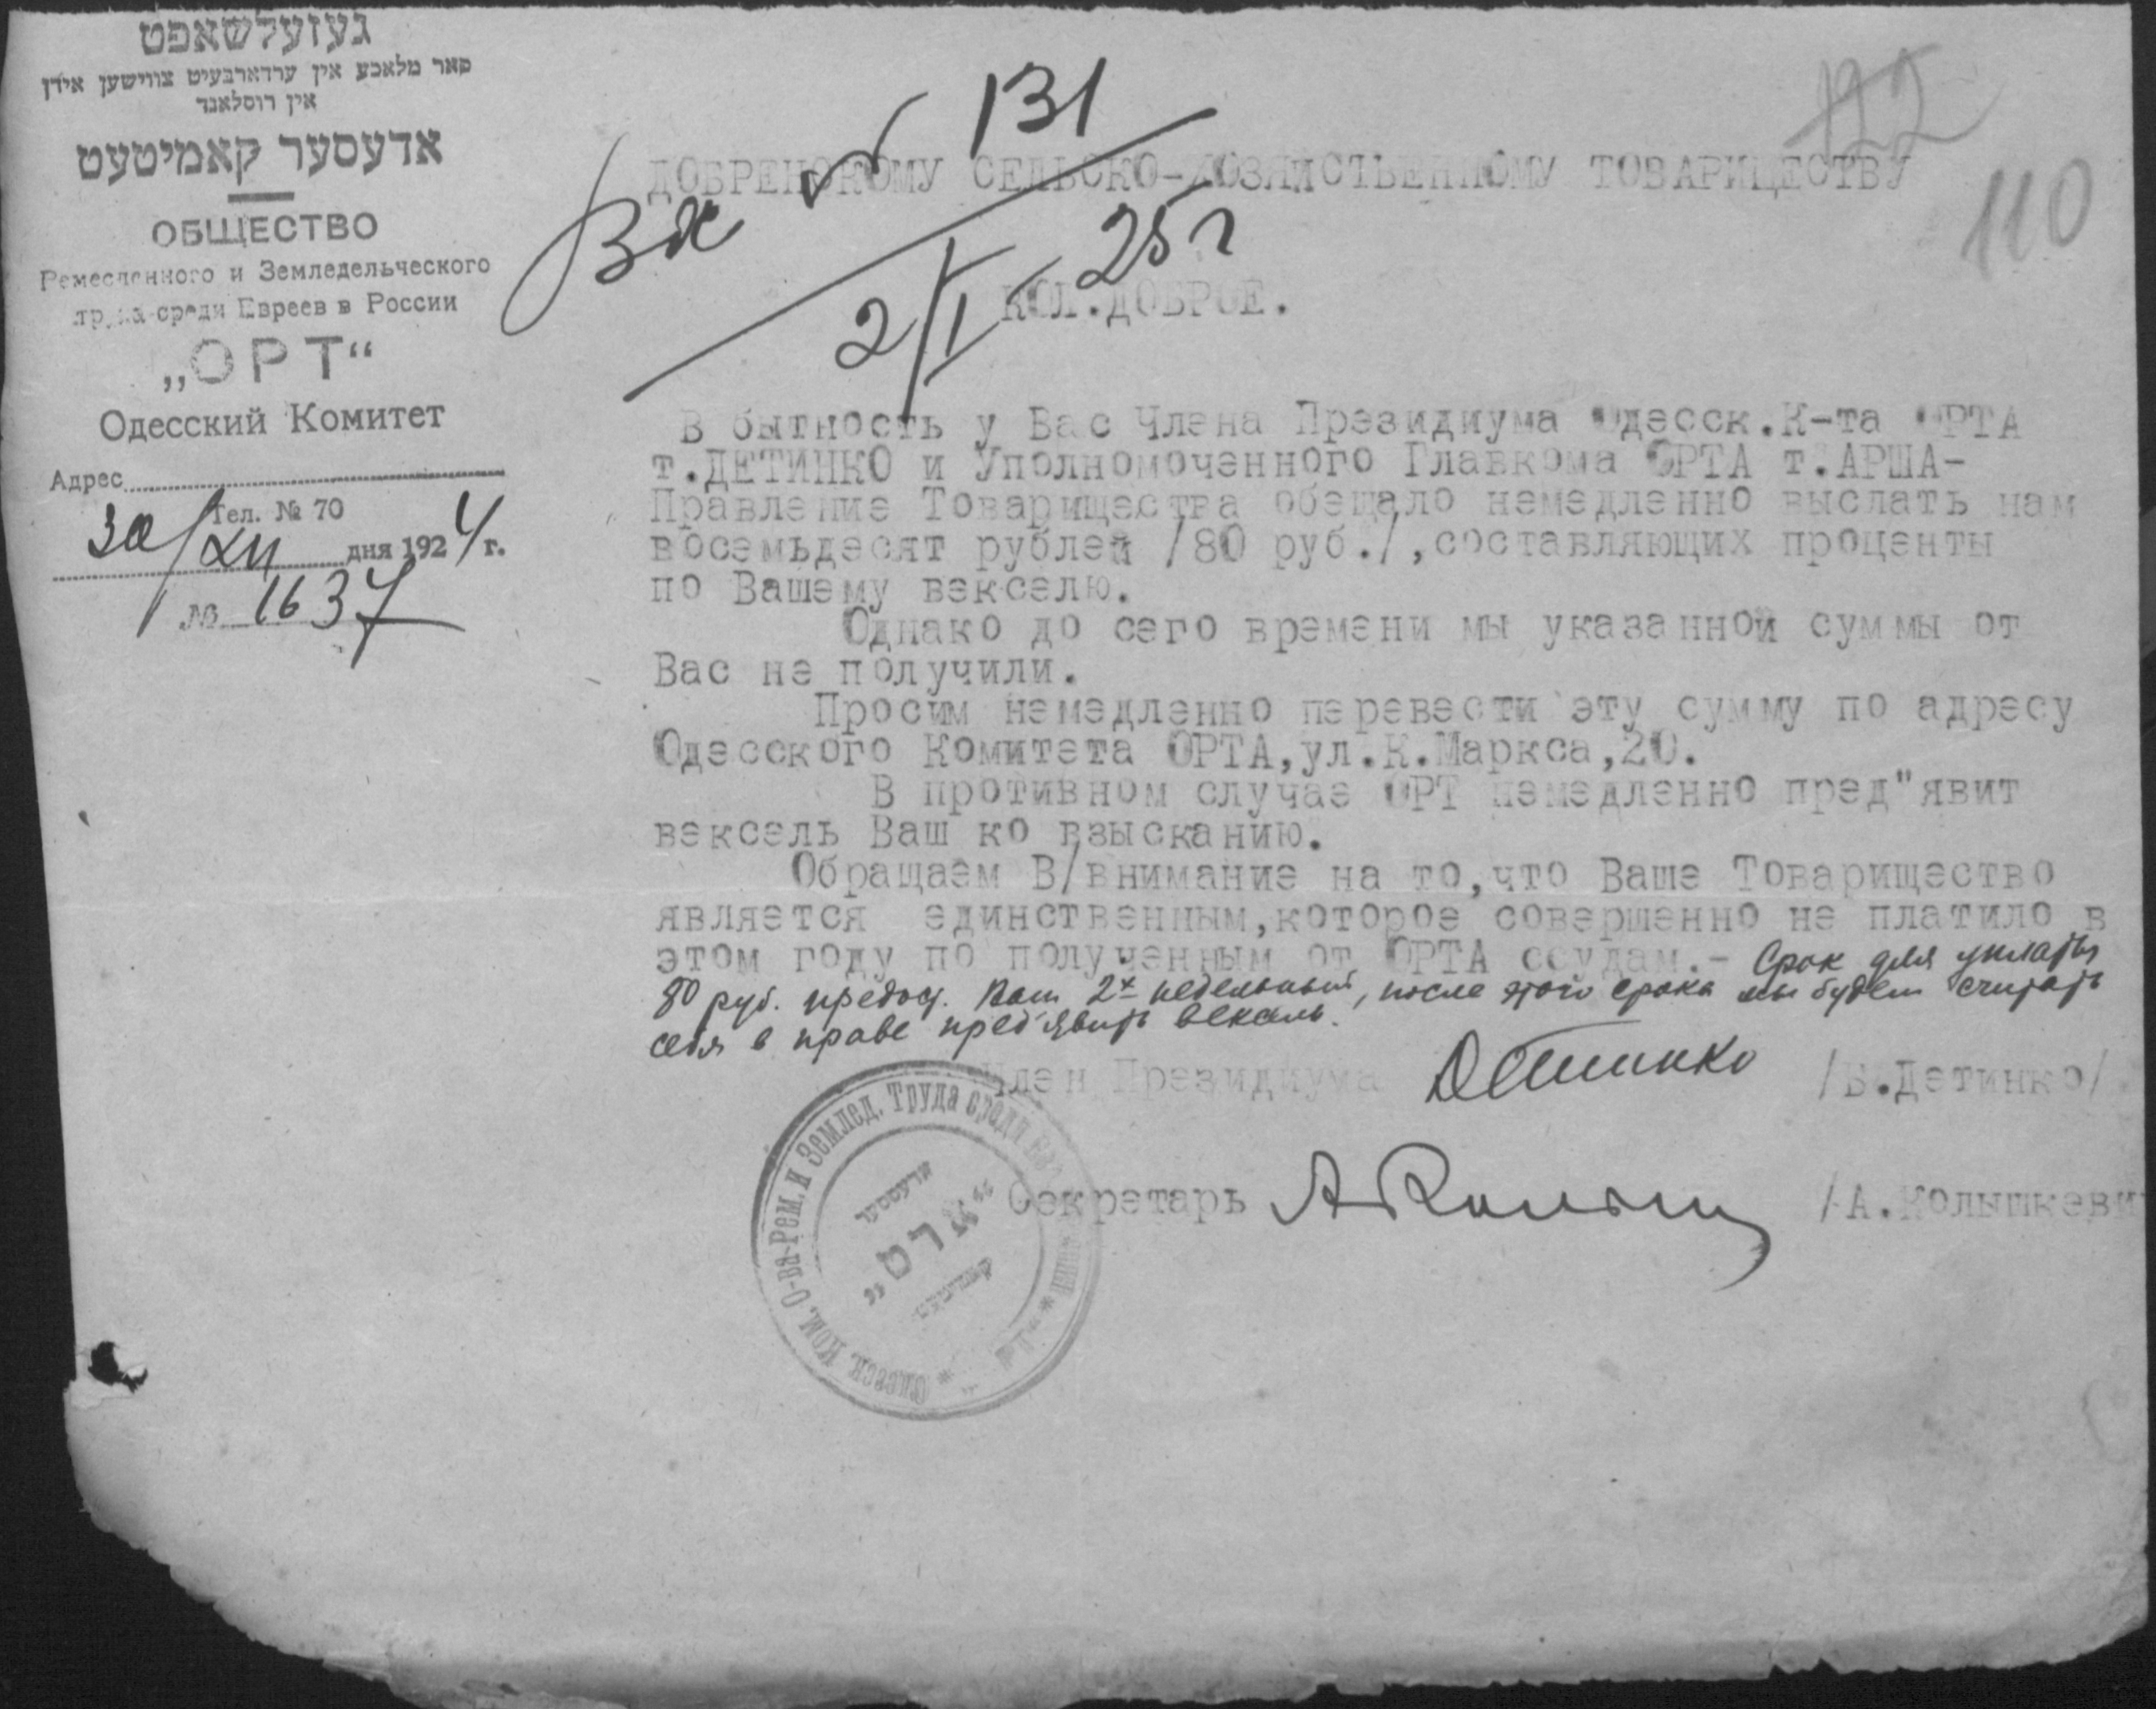 געזעלשאפט
פאר מלאכע אין ערדארבעיט צווישען אידן
אין רוסלאנד
אדעסער קאמיטעט
ОБЩЕСТВО
Ремесленного и Земледельческого
труда среди Евреев в России
„ОРТ“
Одесский Комитет
Адрес
Тел. № 70
30/XII дня 1924 г.
№ 1637
Вх № 131
2/I 25 г
122
110
ДОБРЕНСКОМУ СЕЛЬСКО-ХОЗЯЙСТВЕННОМУ ТОВАРИЩЕСТВУ
КОЛ.ДОБРОЕ.
В бытность у Вас Члена Президиума Одесск.К-та ОРТА
т.ДЕТИНКО и Уполномоченного Главкома ОРТА т.АРША-
Правление Товарищества обещало немедленно выслать нам
восемьдесят рублей /80 руб./,составляющих проценты
по Вашему векселю.
Однако до сего времени мы указанной суммы от
Вас не получили.
Просим немедленно перевести эту сумму по адресу
Одесского Комитета ОРТА,ул.К.Маркса,20.
В противном случае ОРТ немедленно пред"явит
вексель Ваш ко взысканию.
Обращаем В/внимание на то,что Ваше Товарищество
является единственным,которое совершенно не платило в
этом году по полученным от ОРТА ссудам.- Срок для уплаты
80 руб. предост. Вам 2х недельный, после этого срока мы будем считать
себя в праве пред'явить вексель.
Член Президиума Детинко /Б.Детинко/
Секретарь А Колыш /А.Колышкеви
Одесск. Ком. О-ва Рем. и Землед. Труда среди Евр
אדעססער
„ארט“
קאמיטעט